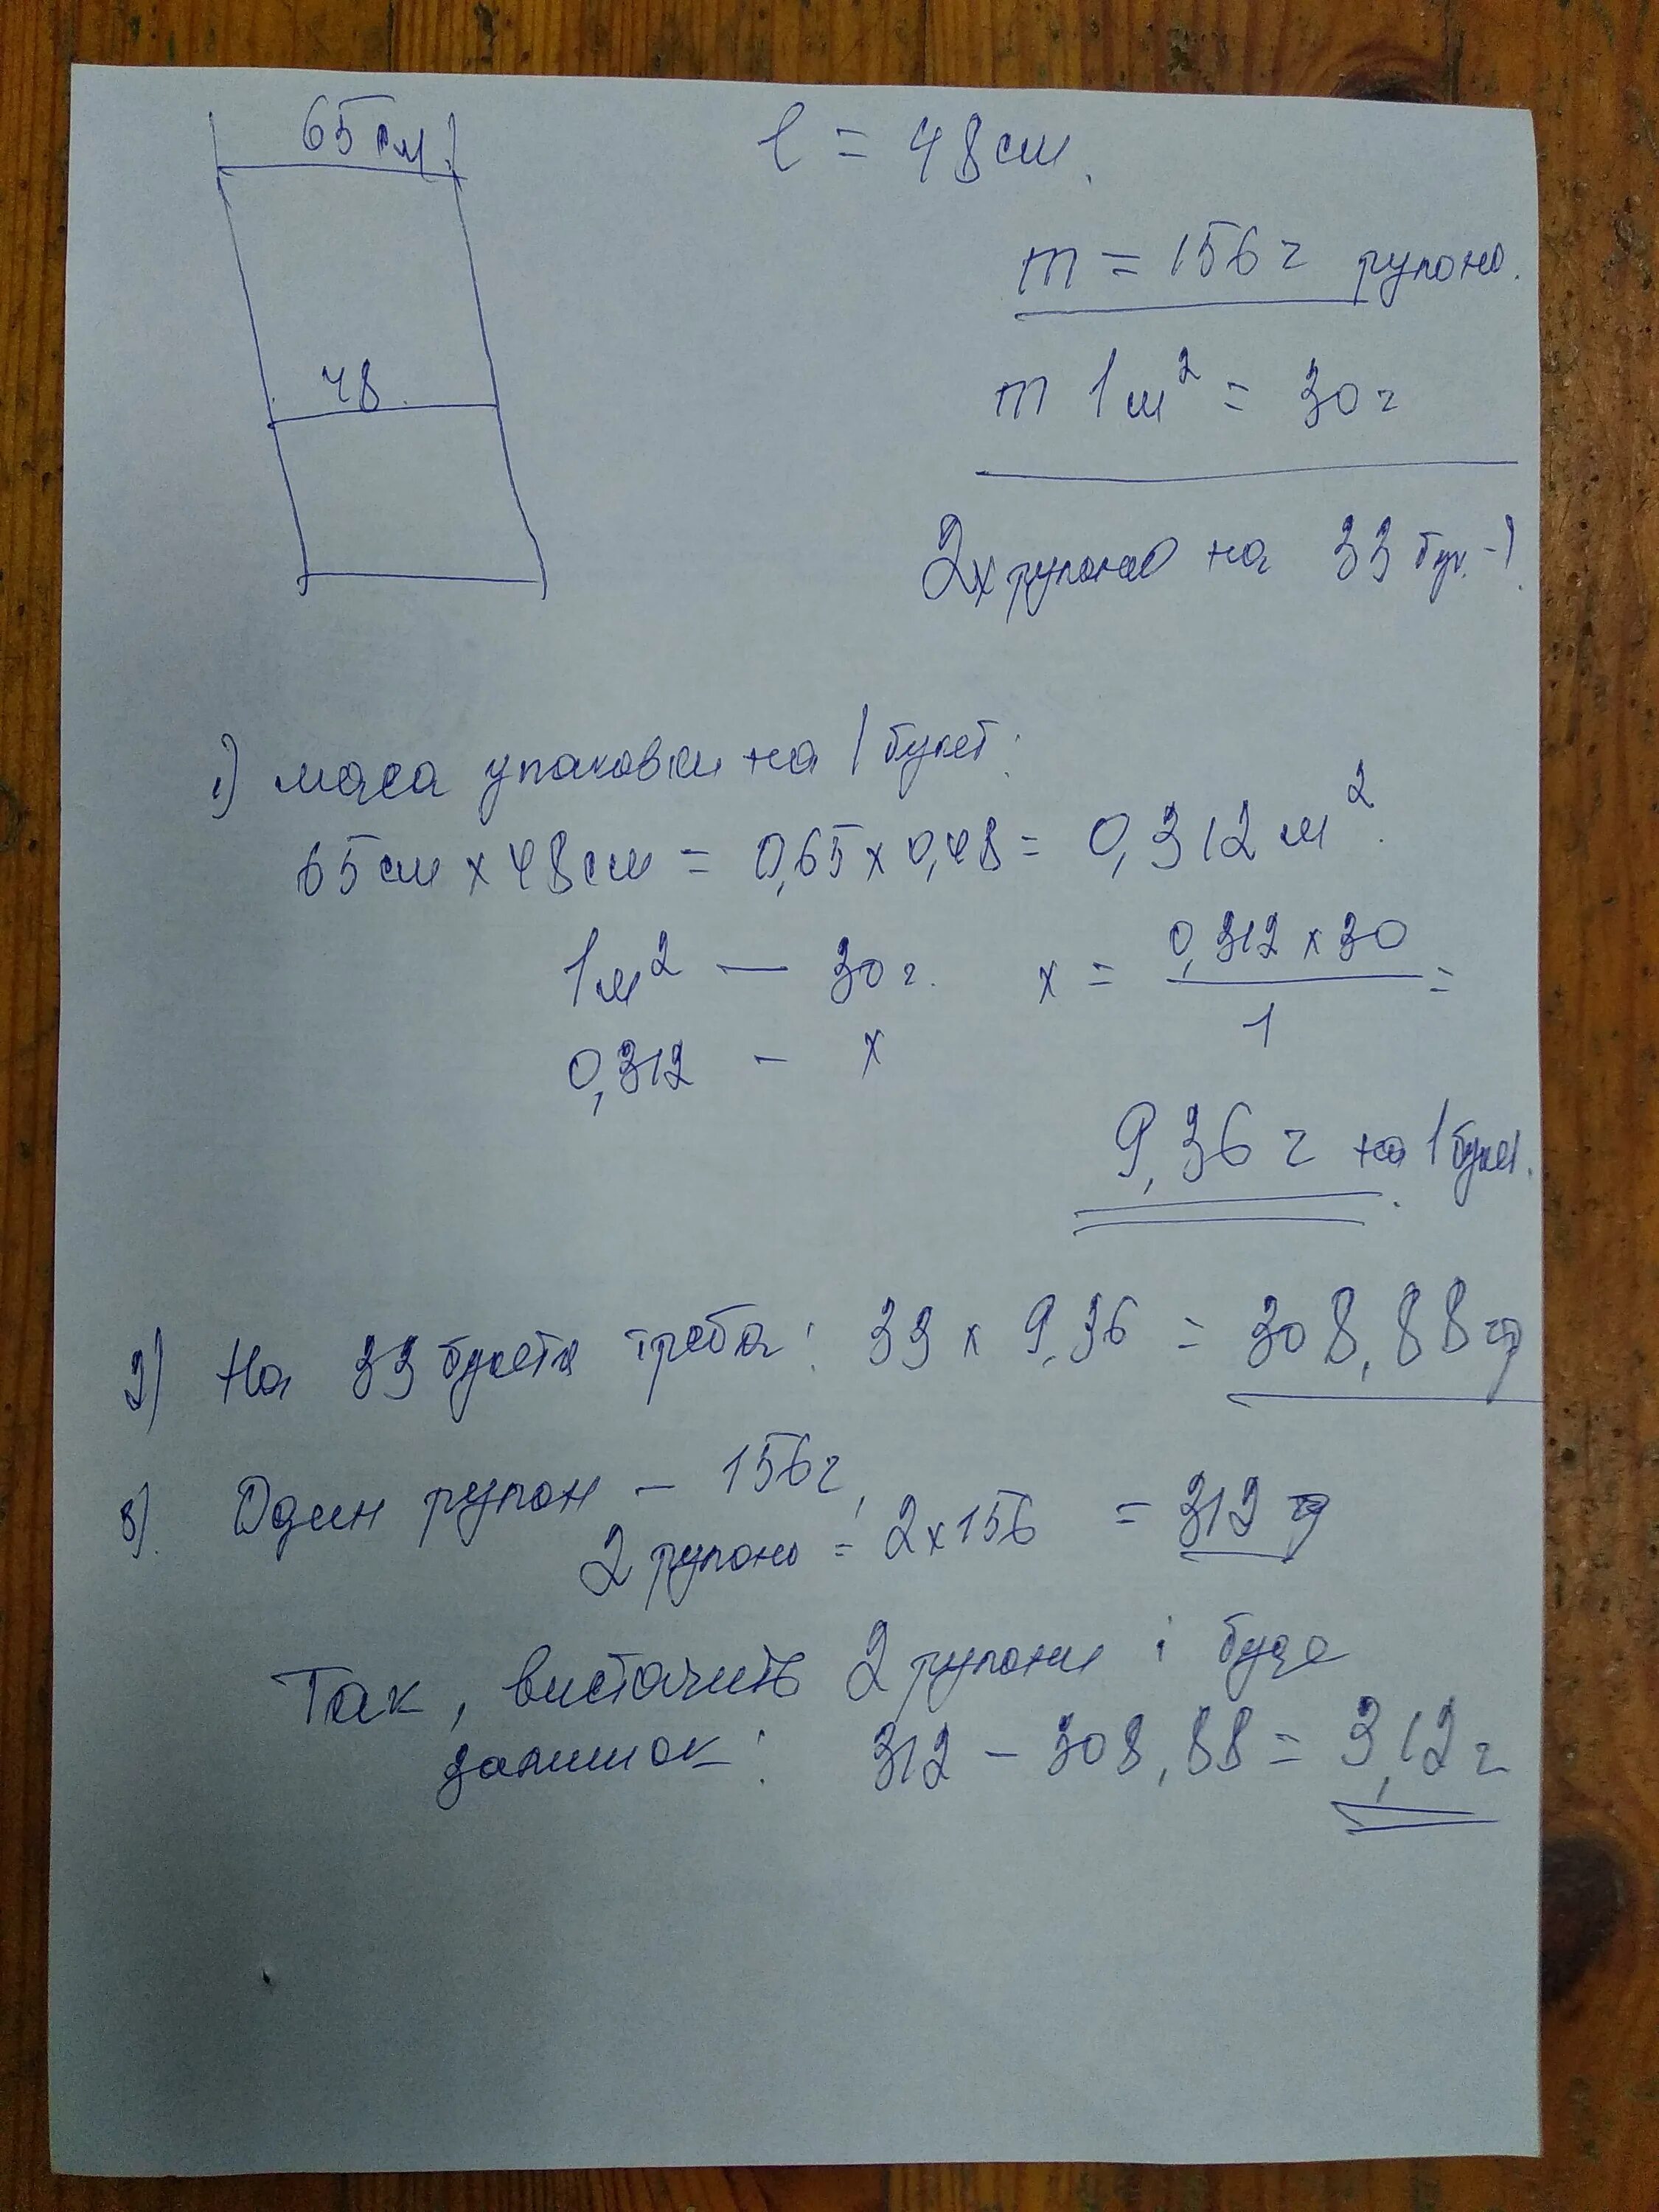 65 см
l = 48 см.
m = 156 г рулоно.
m 1 м² = 30 г
48.
2х рулонів на 33 бук. - ?
1) маса упаковки на 1 букет:
65 см x 48 см = 0,65 x 0,48 = 0,312 м².
1 м² — 30 г. x = 0,312 x 30 / 1 =
0,312 — x
9,36 г на 1 букет.
2) На 33 букета треба: 33 x 9,36 = 308,88 г
3) Один рулон - 156 г,
2 рулоно = 2 x 156 = 312 г
Так, вистачить 2 рулони і буде
залишок: 312 - 308,88 = 3,12 г